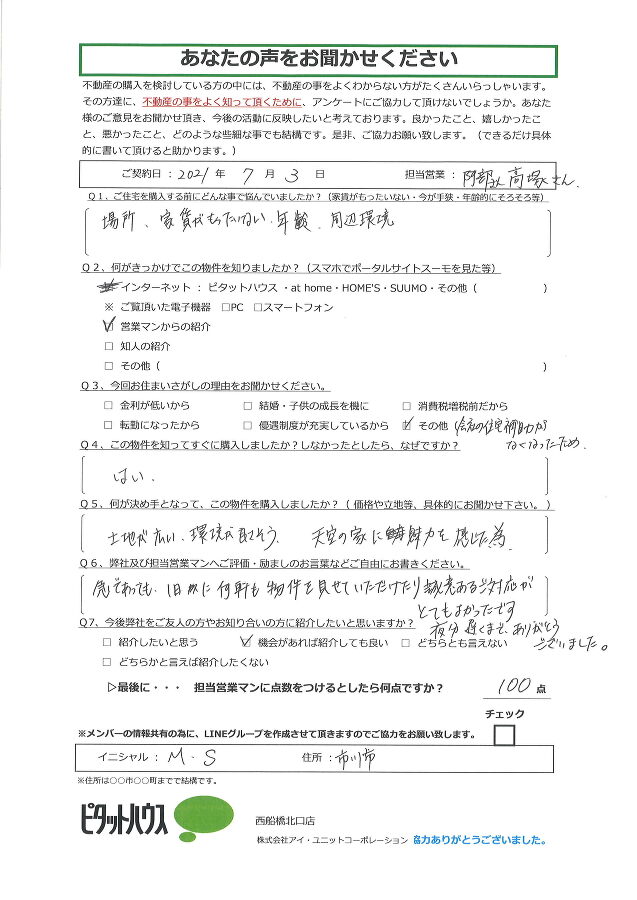 あなたの声をお聞かせください
不動産の購入を検討している方の中には、不動産の事をよくわからない方がたくさんいらっしゃいます。
その方達に、不動産の事をよく知って頂くために、アンケートにご協力して頂けないでしょうか。あなた
様のご意見をお聞かせ頂き、今後の活動に反映したいと考えております。良かったこと、嬉しかったこ
と、悪かったこと、どのような些細な事でも結構です。是非、ご協力お願い致します。（できるだけ具体
的に書いて頂けると助かります。）
ご契約日：2021年 7月 3日 担当営業：阿部さん 高塚さん
Q１、ご住宅を購入する前にどんな事で悩んでいましたか？（家賃がもったいない・今が手狭・年齢的にそろそろ等）
場所、家賃がもったいない、年齢、周辺環境
Q２、何がきっかけでこの物件を知りましたか？（スマホでポータルサイトスーモを見た等）
インターネット： ピタットハウス ・at home・HOME'S・SUUMO・その他（ ）
※ ご覧頂いた電子機器 □PC □スマートフォン
☑ 営業マンからの紹介
□ 知人の紹介
□ その他（ ）
Q３、今回お住まいさがしの理由をお聞かせください。
□ 金利が低いから □ 結婚・子供の成長を機に □ 消費税増税前だから
□ 転勤になったから □ 優遇制度が充実しているから ☑ その他（会社の住宅補助が
なくなったため
Q４、この物件を知ってすぐに購入しましたか？しなかったとしたら、なぜですか？
はい、
Q５、何が決め手となって、この物件を購入しましたか？（ 価格や立地等、具体的にお聞かせ下さい。）
土地が広い、環境が良さそう、 天空の家に魅力を感じた為
Q６、弊社及び担当営業マンへご評価・励ましのお言葉などご自由にお書きください。
急であっても、1日に何軒も物件を見せていただけたり誠意ある対応が
とてもよかったです
夜分遅くまで、ありがとう
ございました。
Q7、今後弊社をご友人の方やお知り合いの方に紹介したいと思いますか？
□ 紹介したいと思う ☑ 機会があれば紹介しても良い □ どちらとも言えない
□ どちらかと言えば紹介したくない
▷最後に・・・ 担当営業マンに点数をつけるとしたら何点ですか？ 100 点
チェック
※メンバーの情報共有の為に、LINEグループを作成させて頂きますのでご協力をお願い致します。 □
イニシャル： M・S 住所：市川市
※住所は〇〇市〇〇町までで結構です。
ピタットハウス
西船橋北口店
株式会社アイ・ユニットコーポレーション 協力ありがとうございました。